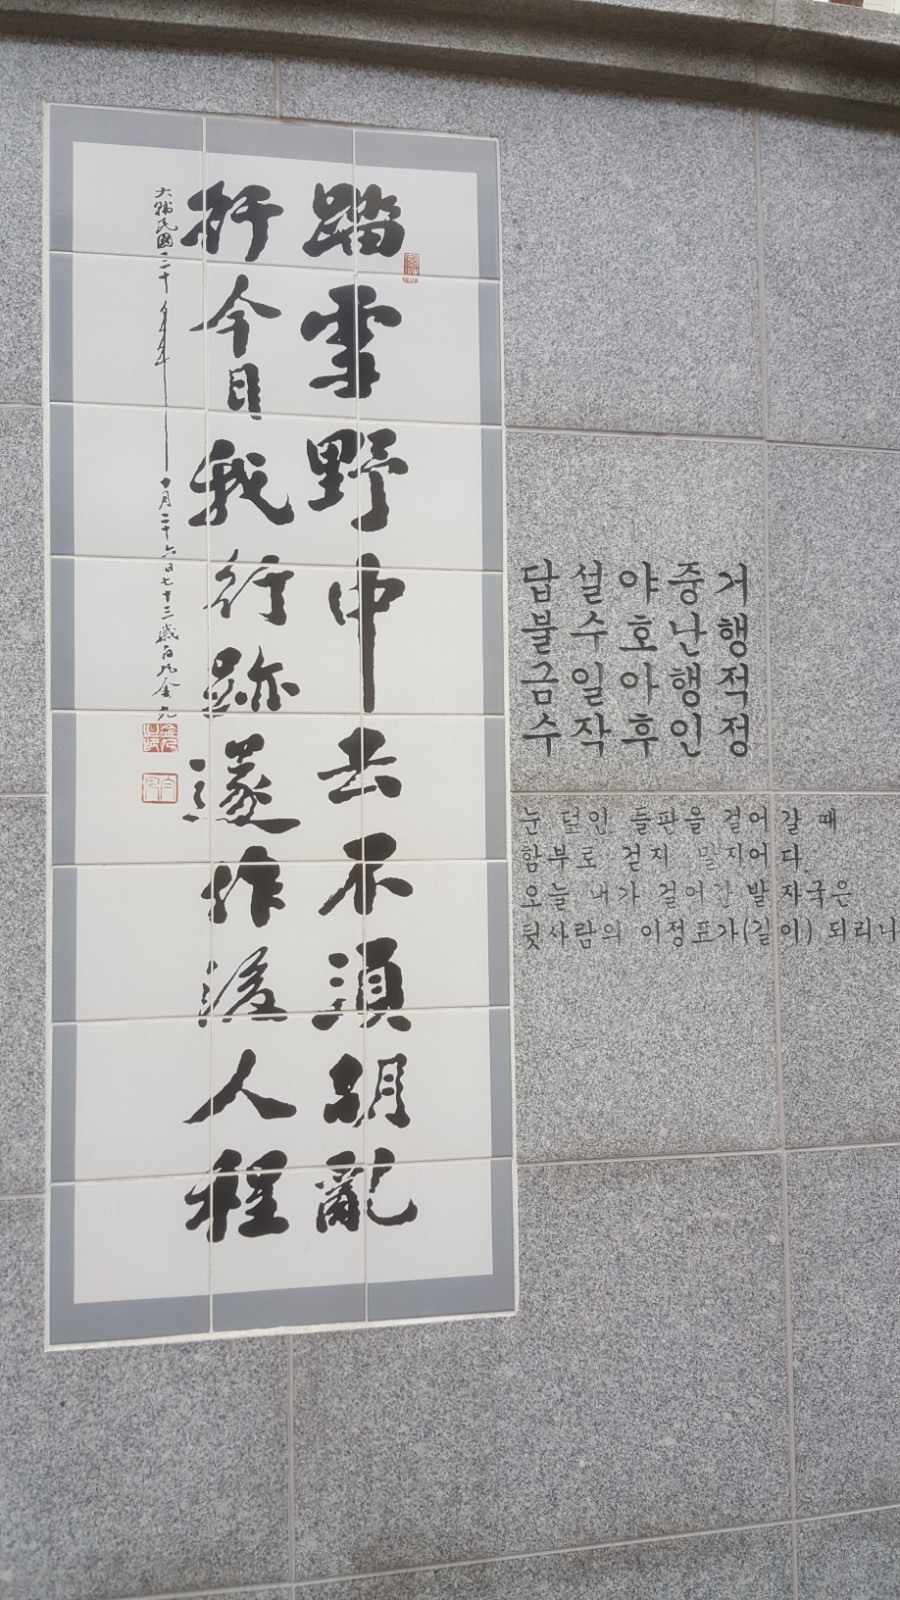 踏雪野中去不須胡亂
行今日我行跡遂作後人程
大韓民國三十年 十月二十六日七十三歲白凡金九
답설야중거
불수호난행
금일아행적
수작후인정
눈 덮인 들판을 걸어갈 때
함부로 걷지 말지어다
오늘 내가 걸어간 발자국은
뒷사람의 이정표가(길이) 되리니